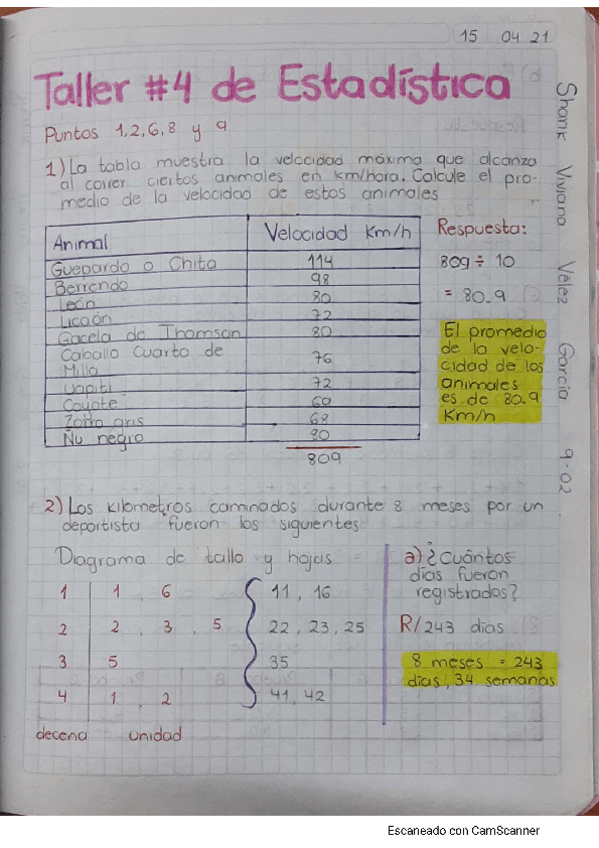 15 04 21
Taller #4 de Estadística
Puntos 1,2,6,8 y 9
1) La tabla muestra la velocidad máxima que alcanza
al correr ciertos animales en km/hora. Calcule el pro-
medio de la velocidad de estos animales
Animal Velocidad Km/h
Guepardo o Chita 114
Berrendo 98
León 80
Licaón 72
Gacela de Thomson 80
Caballo Cuarto de
Milla 76
Uapiti 72
Coyote 69
Zorro gris 68
Ñu negro 80
809
Respuesta:
809 ÷ 10
= 80.9
El promedio
de la velo-
cidad de los
animales
es de 80.9
Km/h
Shank Viviana Vélez García 9-02
2) Los kilometros caminados durante 8 meses por un
deportista fueron los siguientes
Diagrama de tallo y hojas =
1 1, 6 11, 16
2 2, 3, 5 22, 23, 25
3 5 35
4 1, 2 41, 42
decena unidad
a) ¿Cuántos
días fueron
registrados?
R/243 días
8 meses = 243
días, 34 semanas
Escaneado con CamScanner